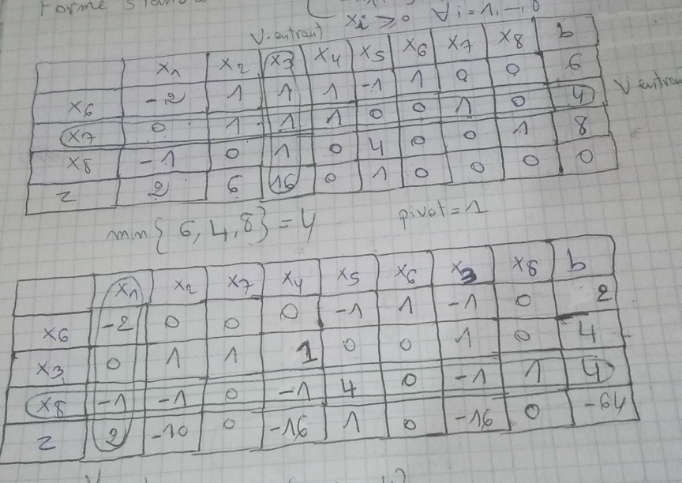 Forme Standard
xi ≥ 0 ∀i = 1, -, 8
V.entrant
x1 x2 x3 x4 x5 x6 x7 x8 b
x6 -2 1 1 1 -1 1 0 0 6
x7 0 1 1 1 0 0 1 0 4 V entran
x8 -1 0 1 0 4 0 0 1 8
z 2 6 16 0 1 0 0 0 0
min{6, 4, 8} = 4 pivot = 1
x1 x2 x7 x4 x5 x6 x3 x8 b
x6 -2 0 0 0 -1 1 -1 0 2
x3 0 1 1 1 0 0 1 0 4
x8 -1 -1 0 -1 4 0 -1 1 4
z 2 -10 0 -16 1 0 -16 0 -64